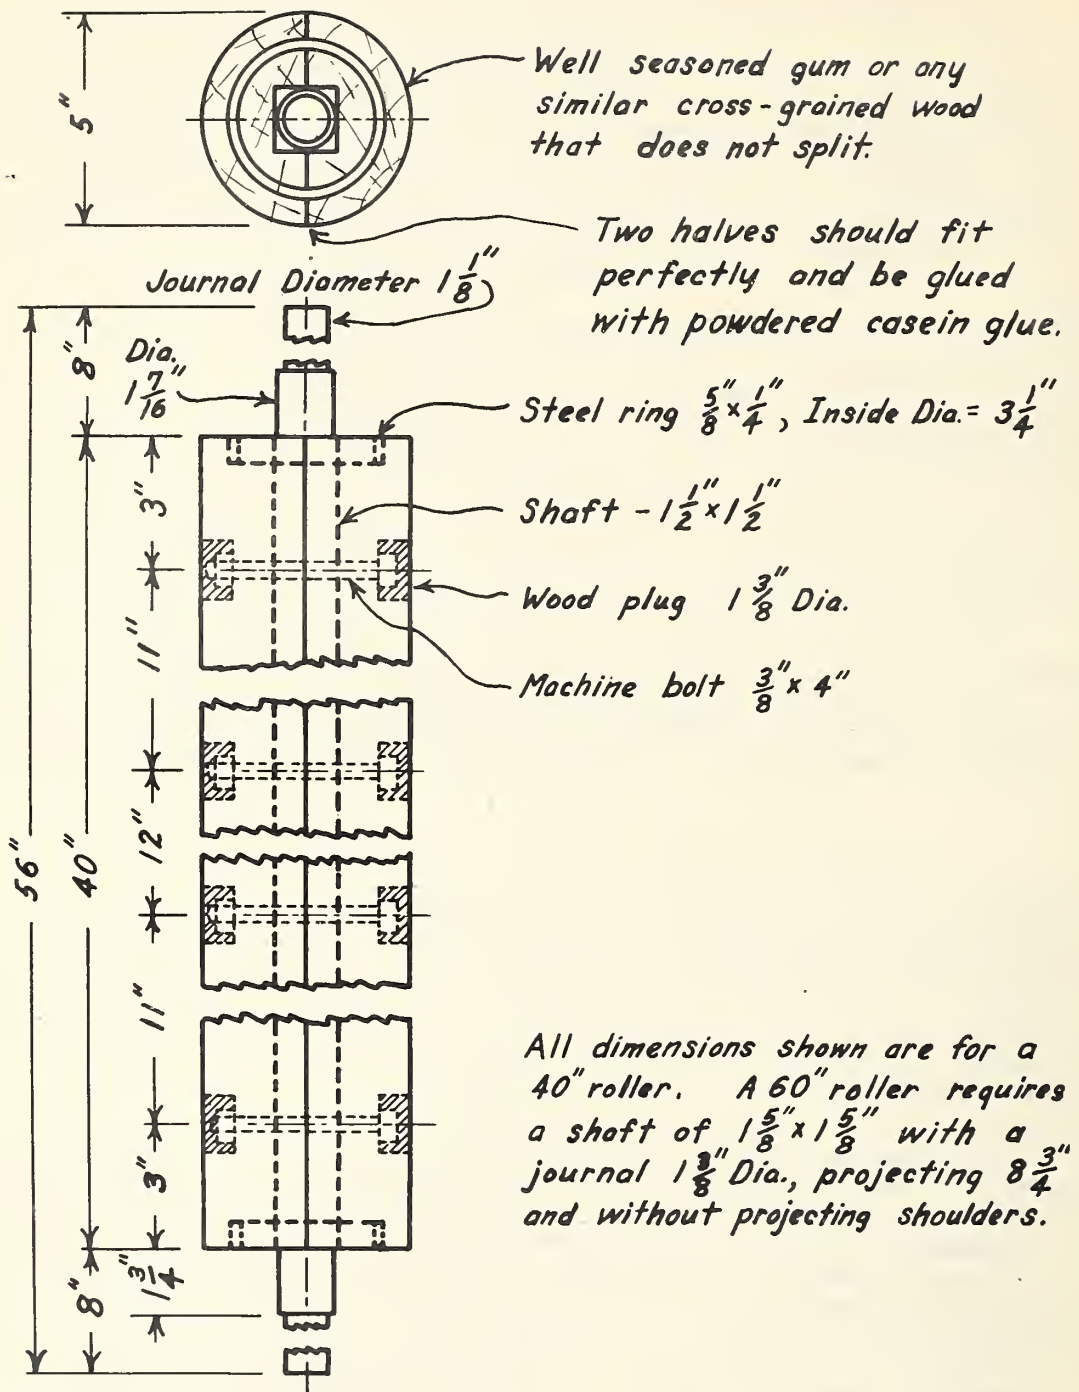 5"
Well seasoned gum or any
similar cross-grained wood
that does not split.
Two halves should fit
perfectly and be glued
with powdered casein glue.
Journal Diameter 1 1/8"
8"
Dia.
1 7/16"
Steel ring 5/8" x 1/4", Inside Dia.= 3 1/4"
3"
Shaft - 1 1/2" x 1 1/2"
Wood plug 1 3/8" Dia.
11"
Machine bolt 3/8" x 4"
12"
56"
40"
11"
All dimensions shown are for a
40" roller. A 60" roller requires
a shaft of 1 5/8" x 1 5/8" with a
journal 1 3/8" Dia., projecting 8 3/4"
and without projecting shoulders.
3"
1 3/4"
8"